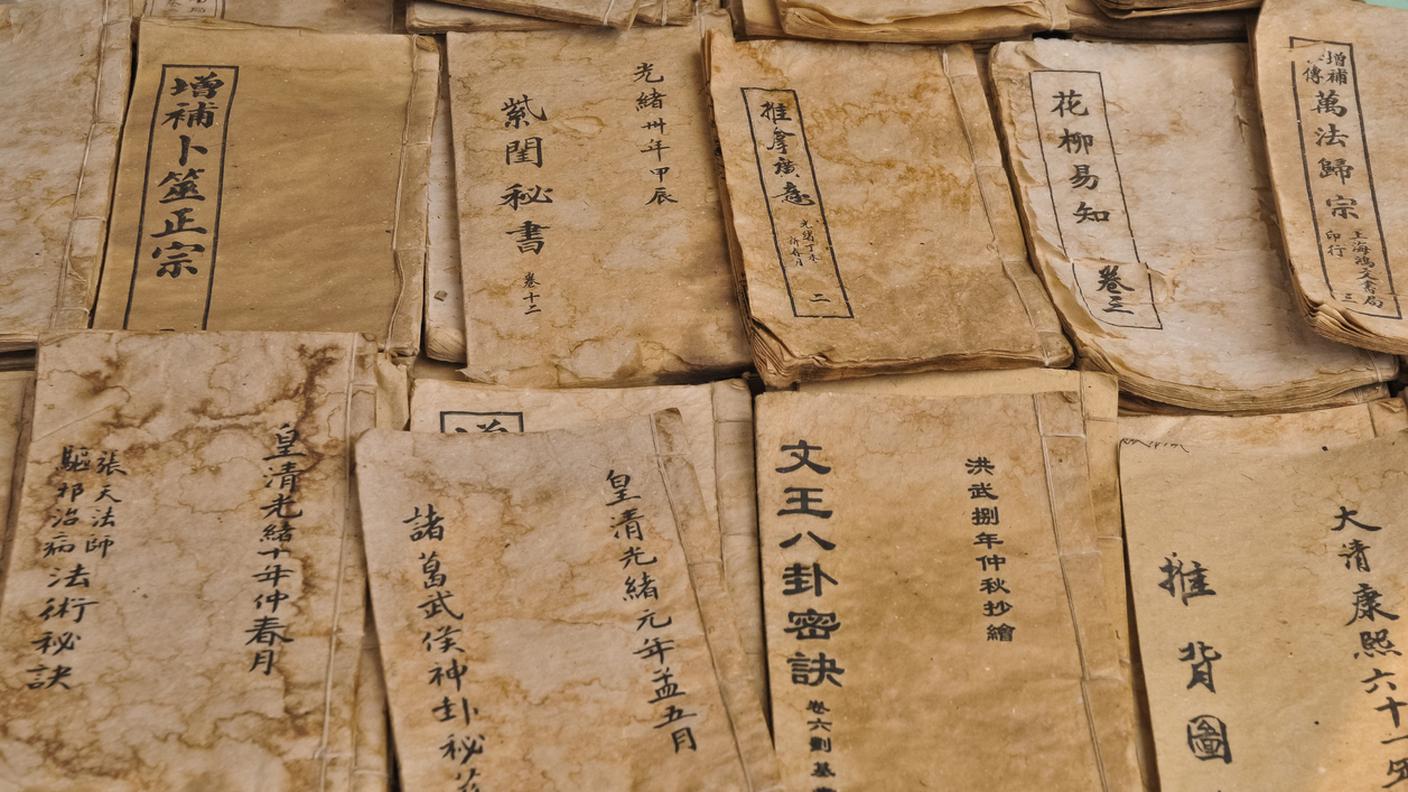 增補卜筮正宗
光緒卅年甲辰
紫閨秘書
卷十二
推拿廣意
二
花柳易知
卷三
增補
萬法歸宗
上海鴻文書局
印行
三
皇清光緒十年仲春月
張天法師
驅邪治病
法術秘訣
皇清光緒元年孟五月
諸葛武侯神卦秘
洪武捌年仲秋抄繪
文王八卦密訣
卷六劉基
大清康熙六十一
推背圖